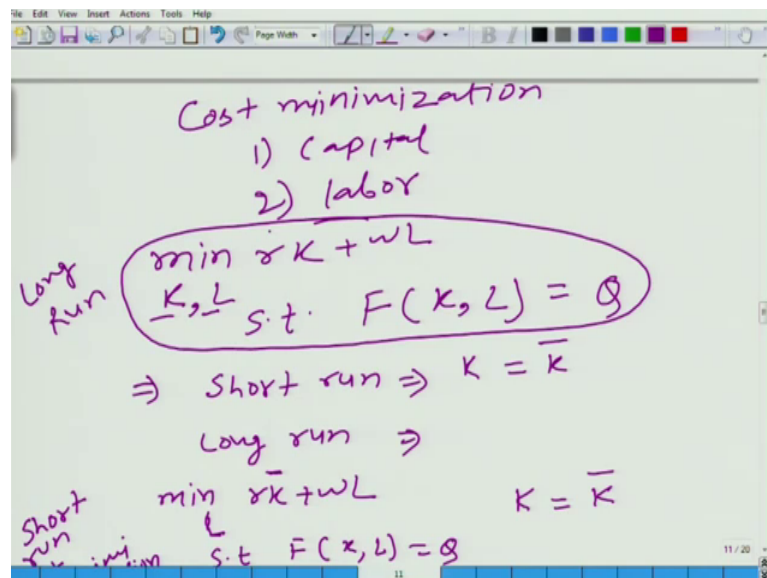 File Edit View Insert Actions Tools Help
Page Width
B I
Cost minimization
1) Capital
2) labor
Long Run
min rK + wL
K, L
s.t. F(K, L) = Q
⇒ Short run ⇒ K = K̅
Long run ⇒
Short run
min rK̅ + wL K = K̅
L
s.t F(K, L) = Q
11 / 20
11